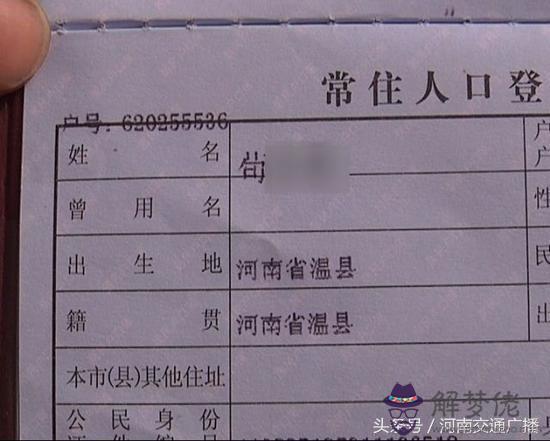 常住人口登
户号: 620255536
姓名
曾用名
出生地 河南省温县
籍贯 河南省温县
本市(县)其他住址
公民身份
解梦佬
头条号／河南交通广播